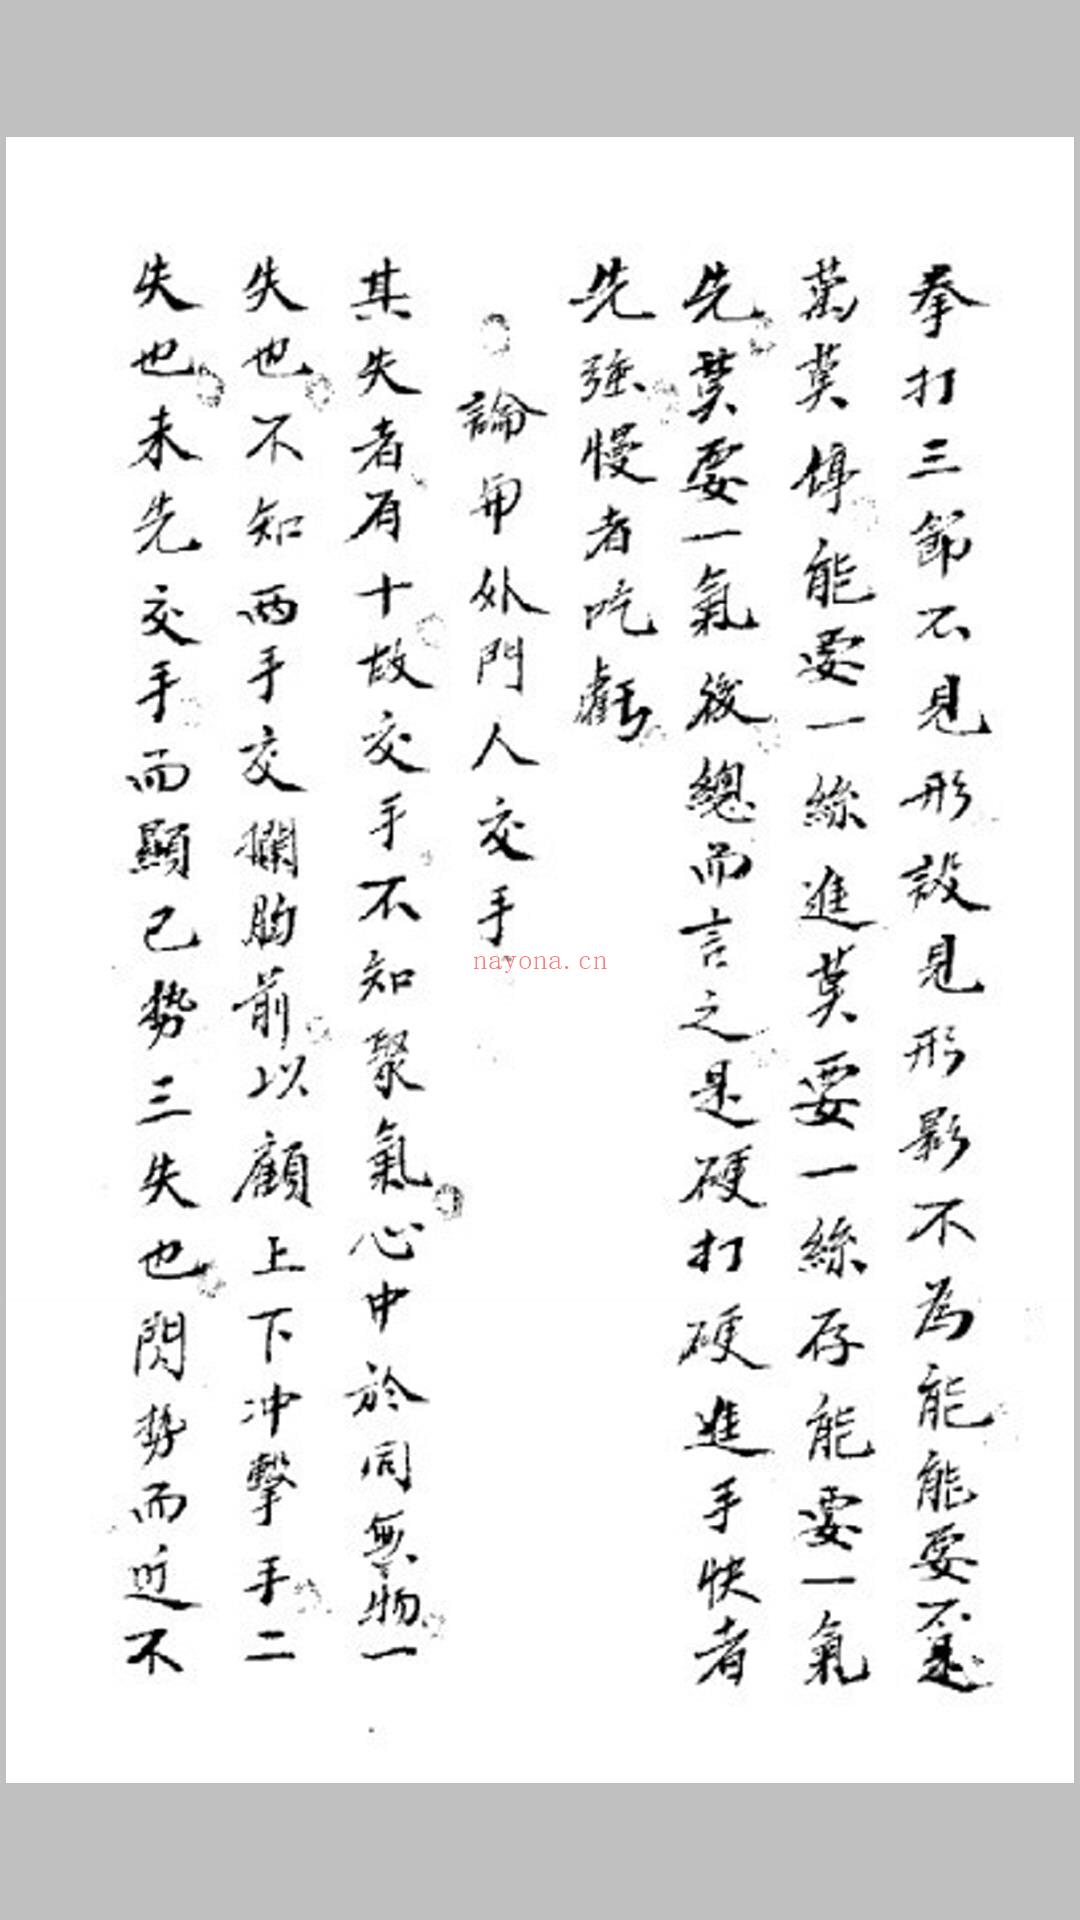 拳打三節不見形設見形影不為能能要不是
萬莫停能要一絲進莫要一絲存能要一氣
先莫要一氣後總而言之是硬打硬進手快者
先強慢者吃虧
論用外門人交手
其失者有十故交手不知聚氣心中於同無物一
失也不知両手交攔胸前以顧上下冲擊手二
失也未先交手而顯己勢三失也閃勢而近不
nayona.cn